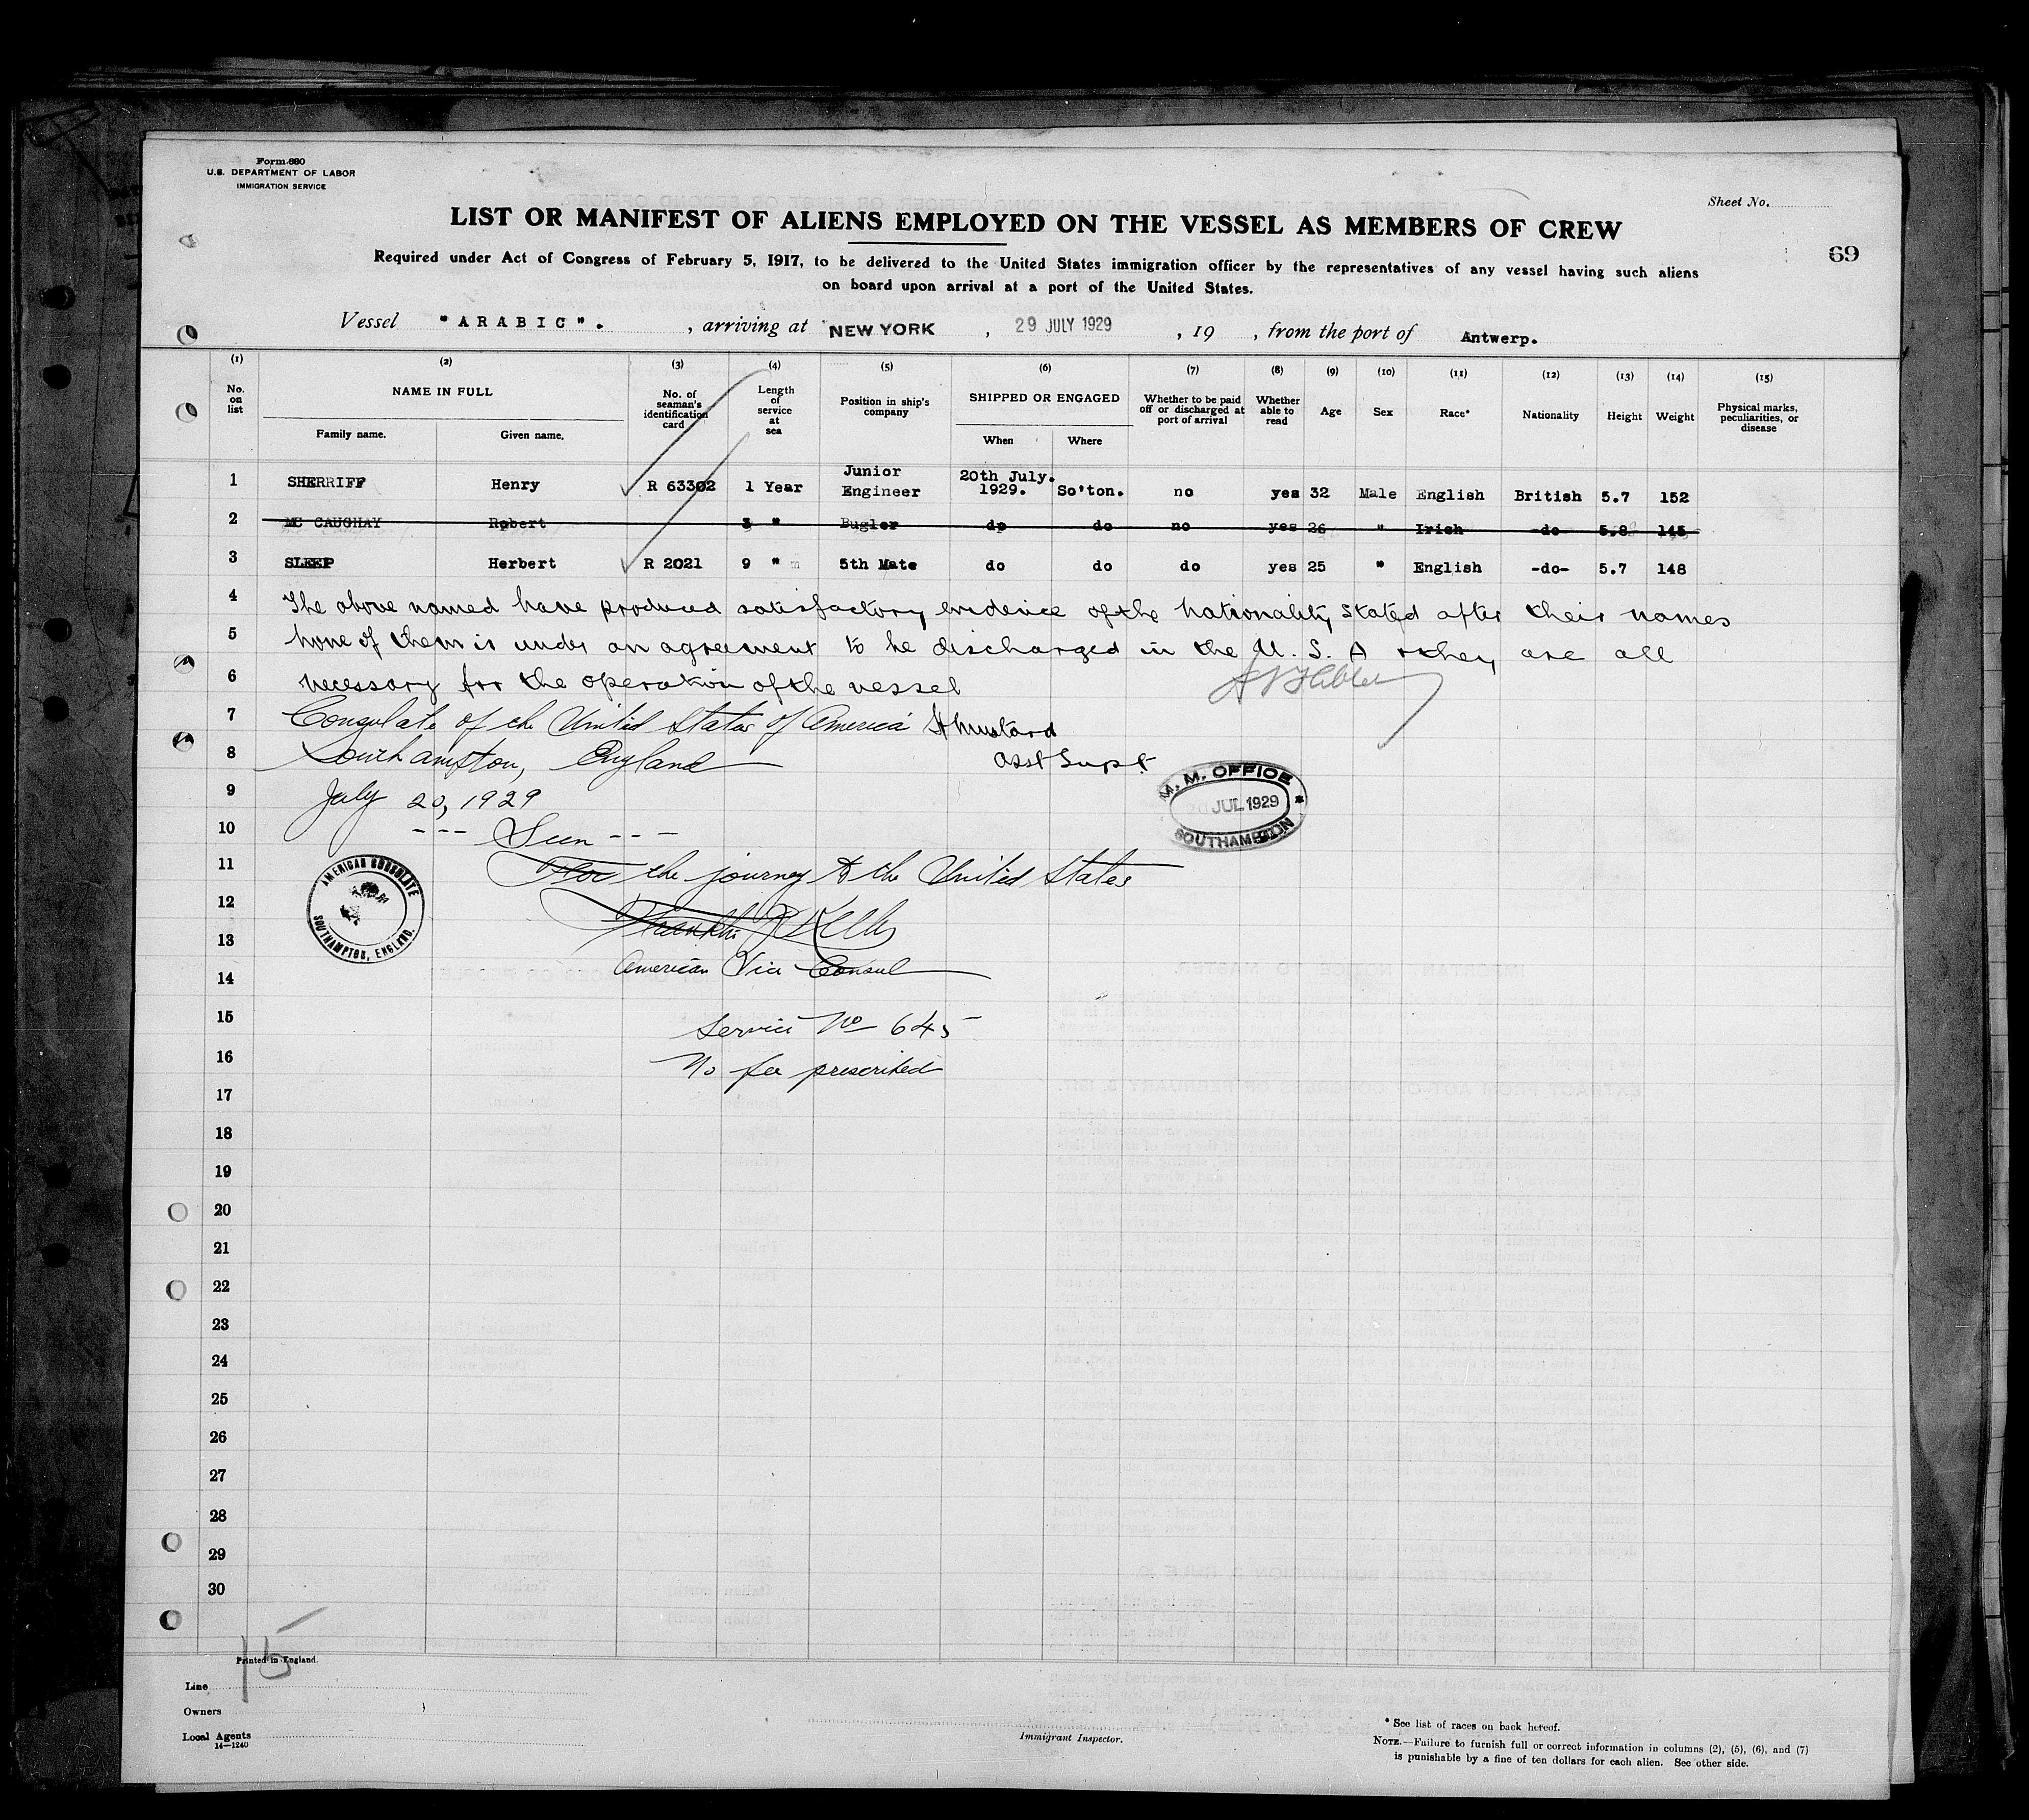 Form 680
U.S. DEPARTMENT OF LABOR
IMMIGRATION SERVICE
Sheet No.
LIST OR MANIFEST OF ALIENS EMPLOYED ON THE VESSEL AS MEMBERS OF CREW
69
Required under Act of Congress of February 5, 1917, to be delivered to the United States immigration officer by the representatives of any vessel having such aliens
on board upon arrival at a port of the United States.
Vessel "ARABIC". , arriving at NEW YORK , 29 JULY 1929 , 19 , from the port of Antwerp.
(1) (2) (3) (4) (5) (6) (7) (8) (9) (10) (11) (12) (13) (14) (15)
No. on list NAME IN FULL Family name. Given name. No. of seaman's identification card Length of service at sea Position in ship's company SHIPPED OR ENGAGED When Where Whether to be paid off or discharged at port of arrival Whether able to read Age Sex Race* Nationality Height Weight Physical marks, peculiarities, or disease
1 SHERRIFF Henry R 63302 1 Year Junior Engineer 20th July. 1929. So'ton. no yes 32 Male English British 5.7 152
2 MC CAUGHAY Robert 3 " Bugler do do no yes 26 " Irish -do- 5.8 145
3 SLEEP Herbert R 2021 9 " 5th Mate do do do yes 25 " English -do- 5.7 148
4 The above named have produced satisfactory evidence of the nationality stated after their names
5 None of them is under an agreement to be discharged in the U. S. A & they are all
6 necessary for the operation of the vessel
7 Consulate of the United States of America H Mustard
8 Southampton, England Asst Supt
9 July 20, 1929
M. M. OFFICE
JUL 1929
SOUTHAMPTON
10 --- Seen ---
11 For the journey to the United States
AMERICAN CONSULATE
SOUTHAMPTON, ENGLAND.
12
13 Franklin
14 American Vice Consul
15 Service No 645
16 No fee prescribed
17
18
19
20
21
22
23
24
25
26
27
28
29
30
15
Printed in England.
Line
Owners
Local Agents
14—1240
Immigrant Inspector.
* See list of races on back hereof.
NOTE.—Failure to furnish full or correct information in columns (2), (5), (6), and (7)
is punishable by a fine of ten dollars for each alien. See other side.